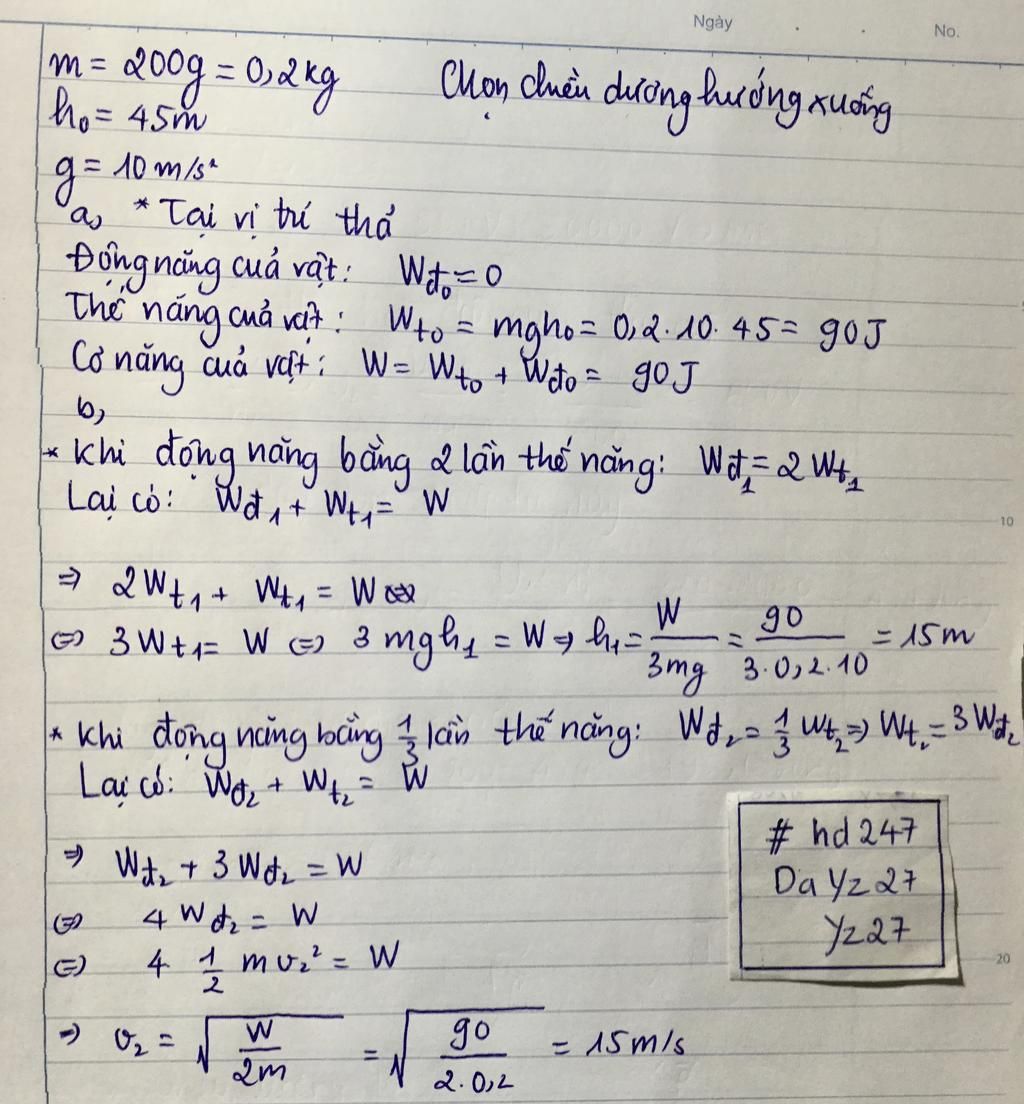 Ngày No.
m = 200g = 0,2kg Chọn chiều dương hướng xuống
h₀ = 45m
g = 10 m/s²
a, * Tại vị trí thả
Động năng của vật: Wđ₀ = 0
Thế năng của vật: Wt₀ = mgh₀ = 0,2.10.45 = 90J
Cơ năng của vật: W = Wt₀ + Wđ₀ = 90J
b,
* Khi động năng bằng 2 lần thế năng: Wđ₁ = 2Wt₁
Lại có: Wđ₁ + Wt₁ = W
10
⇒ 2Wt₁ + Wt₁ = W
⇔ 3Wt₁ = W ⇔ 3mgh₁ = W ⇒ h₁ = W/3mg = 90/3.0,2.10 = 15m
* Khi động năng bằng 1/3 lần thế năng: Wđ₂ = 1/3 Wt₂ ⇒ Wt₂ = 3Wđ₂
Lại có: Wđ₂ + Wt₂ = W
⇒ Wđ₂ + 3Wđ₂ = W
⇔ 4Wđ₂ = W
⇔ 4 1/2 mv₂² = W
⇒ v₂ = √(W/2m) = √(90/2.0,2) = 15m/s
# hd247
Da Yz27
Yz27
20